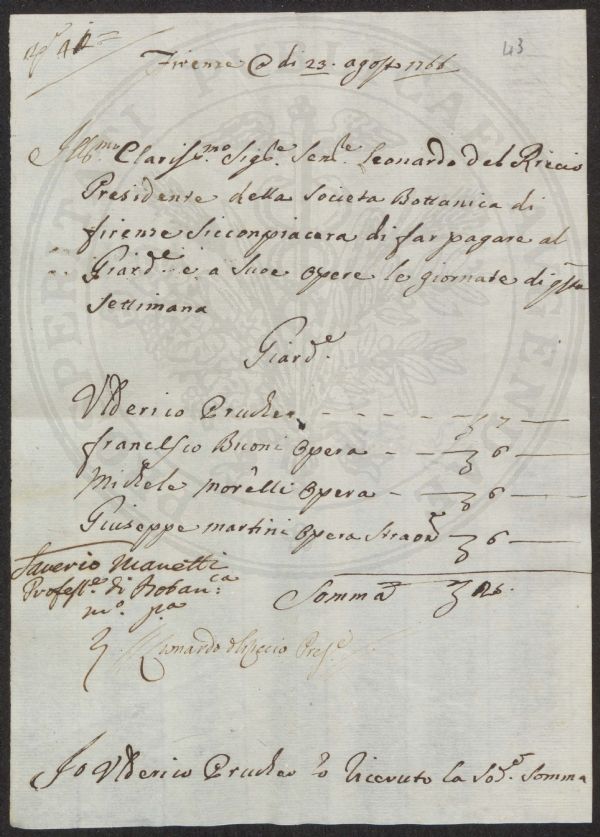 43
Firenze @ di 23. agost 1766
Ill:mo Clariss.mo Sig:e Sen:e Leonardo del Riccio
Presidente della Societa Bottanica di
firenze si conpiacera di far pagare al
Giard:e e a sue opere le giornate di q:sta
settimana
Giard:e
Ulderico Prucker - - - - - 7 —
francesco Buoni opera - - - 6 —
Michele morelli opera - - 6 —
Giuseppe martini opera straor:e 6 —
Saverio Manetti
Profess:e di Botan:ca
m:o p:a
Somma
Leonardo del Riccio Pres:e
Io Ulderico Prucker ho riceuto la Sod:a Somma